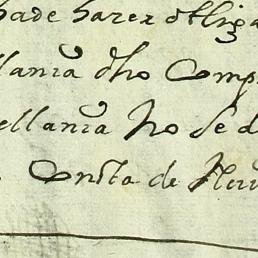 hade hazer obliga
llania dho Comp
ellania No se d
Consta de Nue